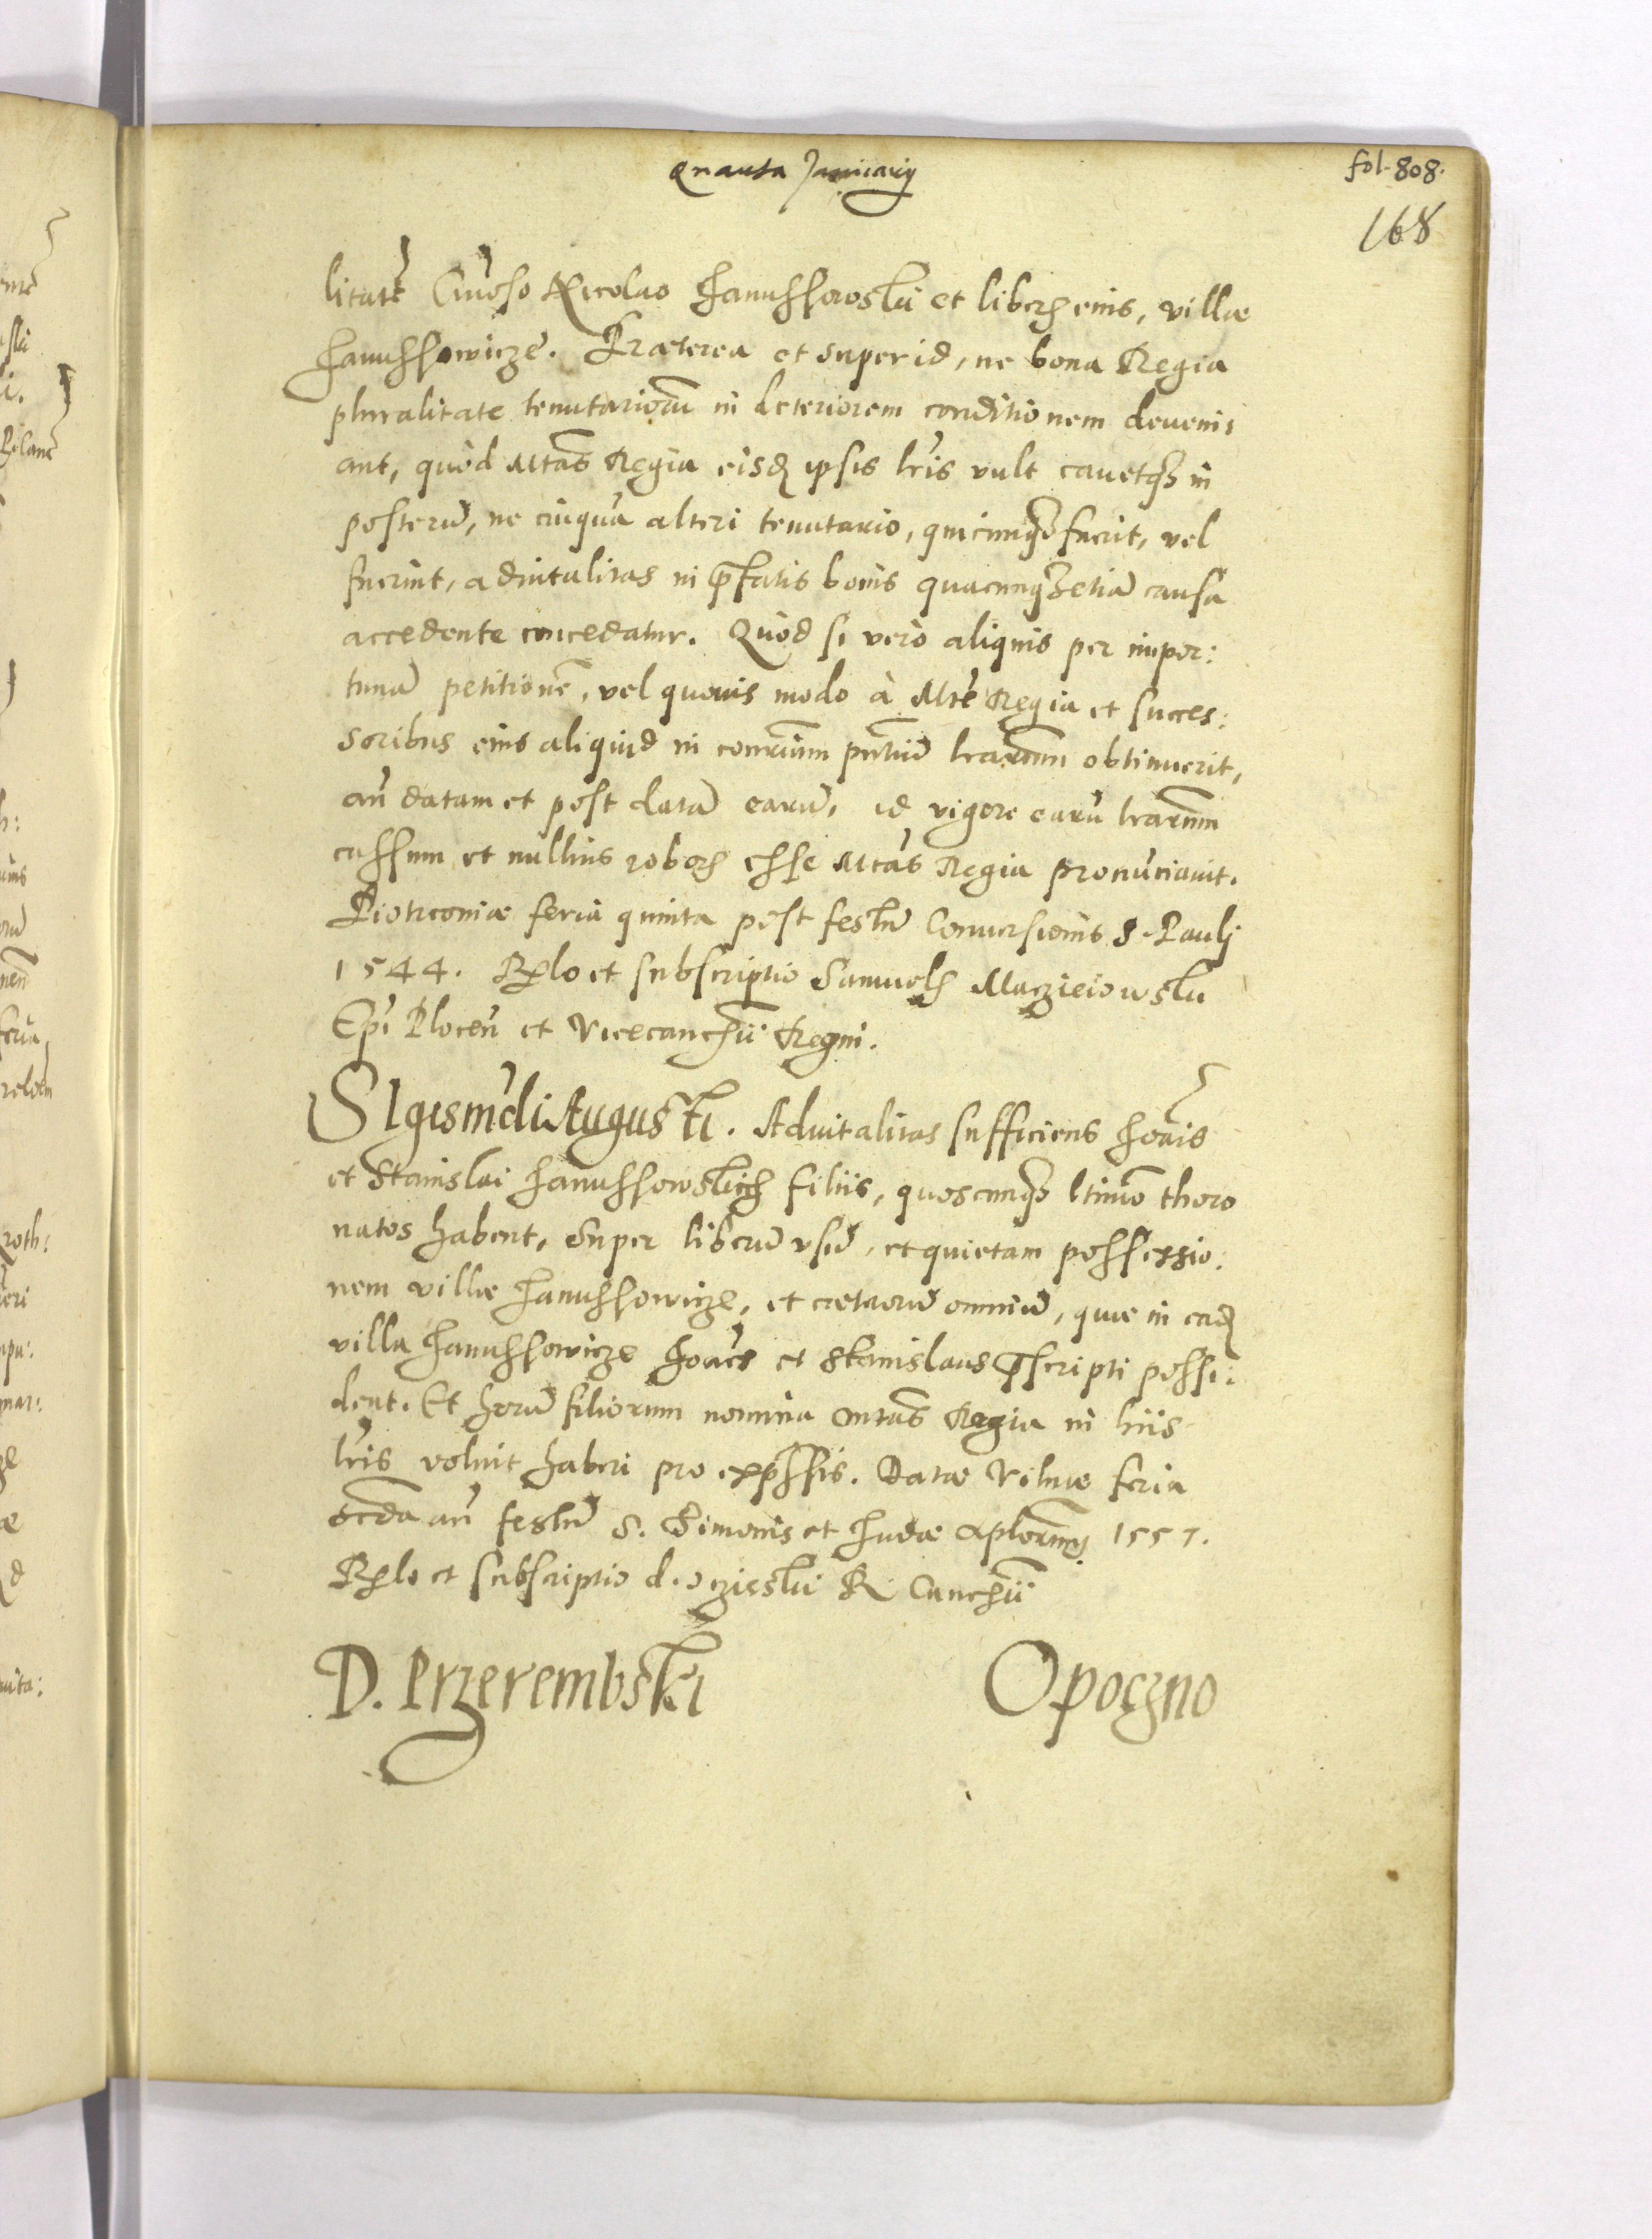 Quarta Januarij
fol. 808.
168
litatẽ Gñoso Nicolao Januſſowski et liberis eius, villæ
Januſſowicze. Præterea et super id, ne bona Regia
pluralitate tenutariorũ in deteriorem conditionem deveni:
ant, quòd Mtas Regia eisd ipsis lris vult cavetq3 in
posterũ, ne cuiquã alteri tenutario, quicunq3 fuerit, vel
fuerint, advitalitas in p̃fatis bonis quacunq3 etiã causa
accedente concedatur. Quòd si vero aliquis per impor:
tunã petitionẽ, vel quovis modo à Mte Regia et succes:
soribus eius aliquid in contrũm pñtiũ lrarum obtinuerit,
añ datam et post datã earũ, id vigore earũ lrarum
cassum et nullius roboris esse Mtas Regia pronũciavit.
Piotrconiæ feria quinta post festũ Conversionis S. Pauli
1544. Rlo et subscriptio Samuelis Maczieiowski
Epi Plocen̄ et Vicecancrii Regni.
SIgismũdi Augusti. Advitalitas sufficiens Joãis
et Stanislai Januſſowskich filiis, quoscunq3 ltimo thoro
natos habent, super liberũ usũ, et quietam possessio:
nem villæ Januſſowicze, et cæterorũ omniũ, quæ in ead
villa Januſſowicze Joães et Stanislaus p̃scripti possi:
dent. Et horũ filiorum nomina Mtas Regia in hiis
lris voluit haberi pro expſſis. Datæ Vilnæ feria
scda añ festũ S. Simonis et Judæ Aplorum 1557.
Rlo et subscriptio d. Oczieski R. Cancrii
D. Przerembski
Opoczno